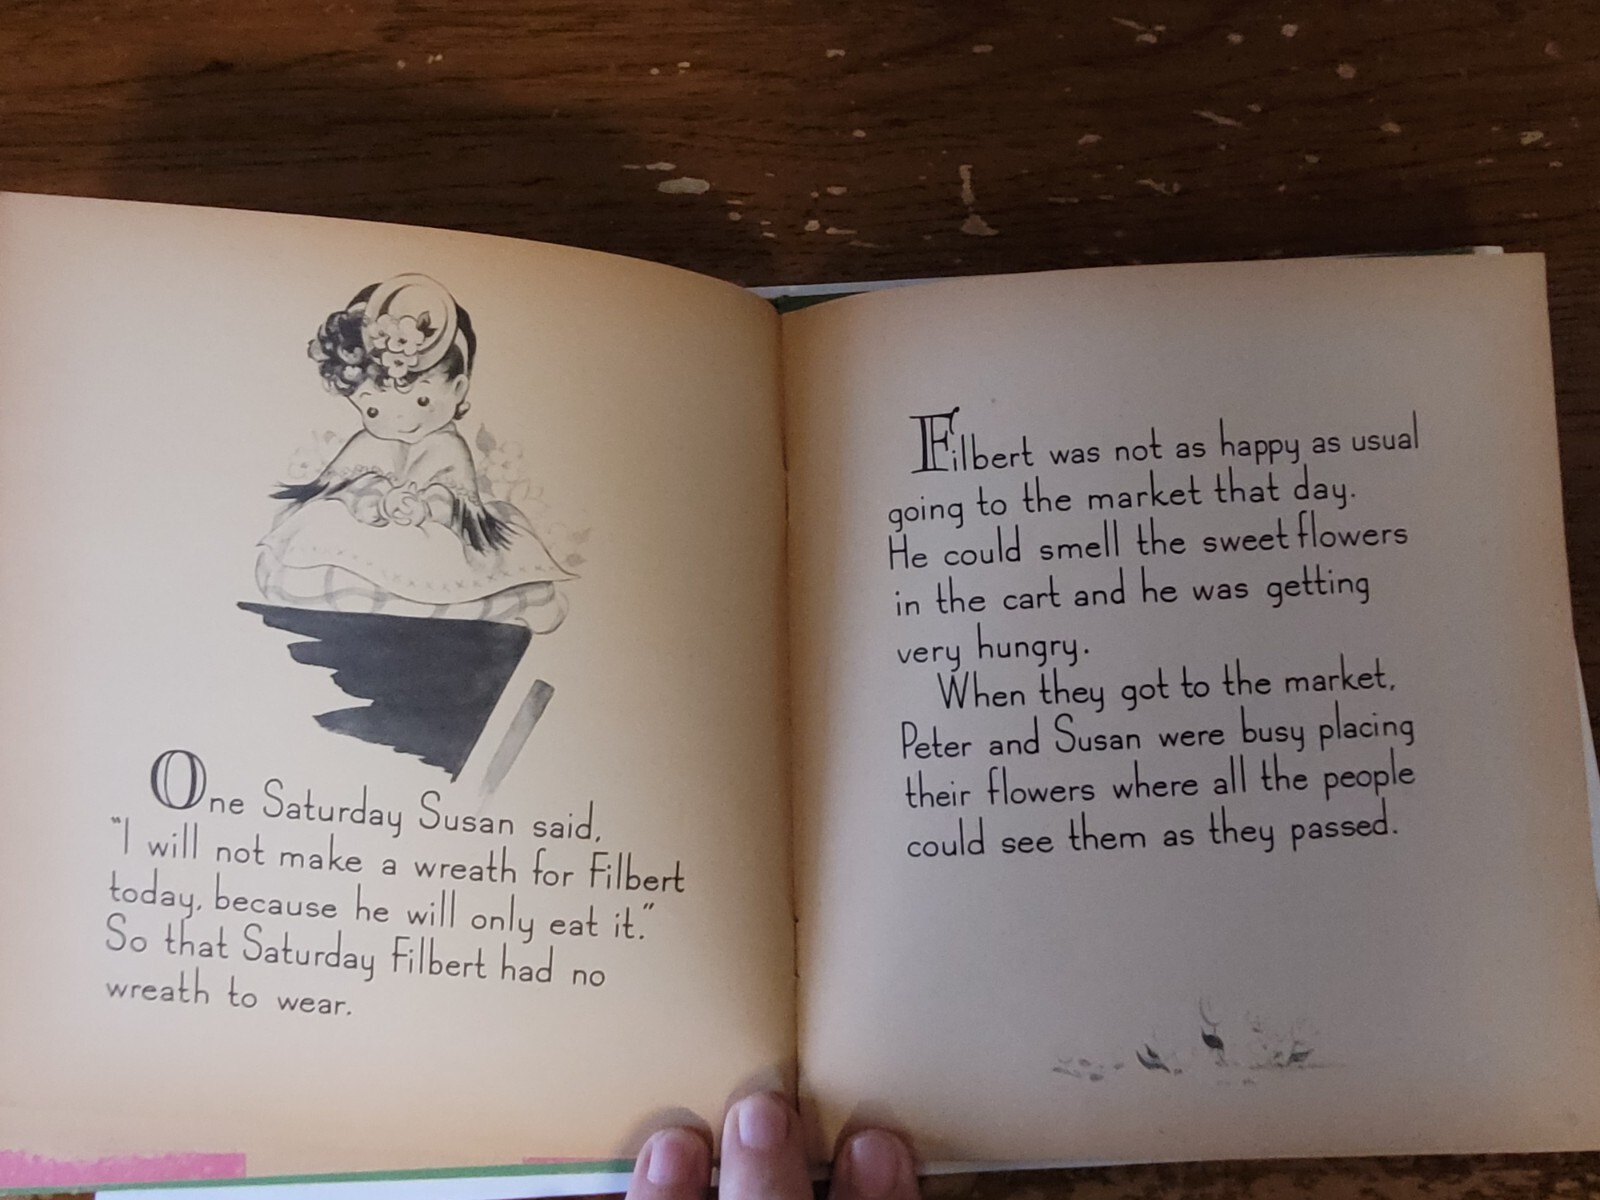 One Saturday Susan said,
"I will not make a wreath for Filbert
today, because he will only eat it."
So that Saturday Filbert had no
wreath to wear.
Filbert was not as happy as usual
going to the market that day.
He could smell the sweet flowers
in the cart and he was getting
very hungry.
When they got to the market,
Peter and Susan were busy placing
their flowers where all the people
could see them as they passed.